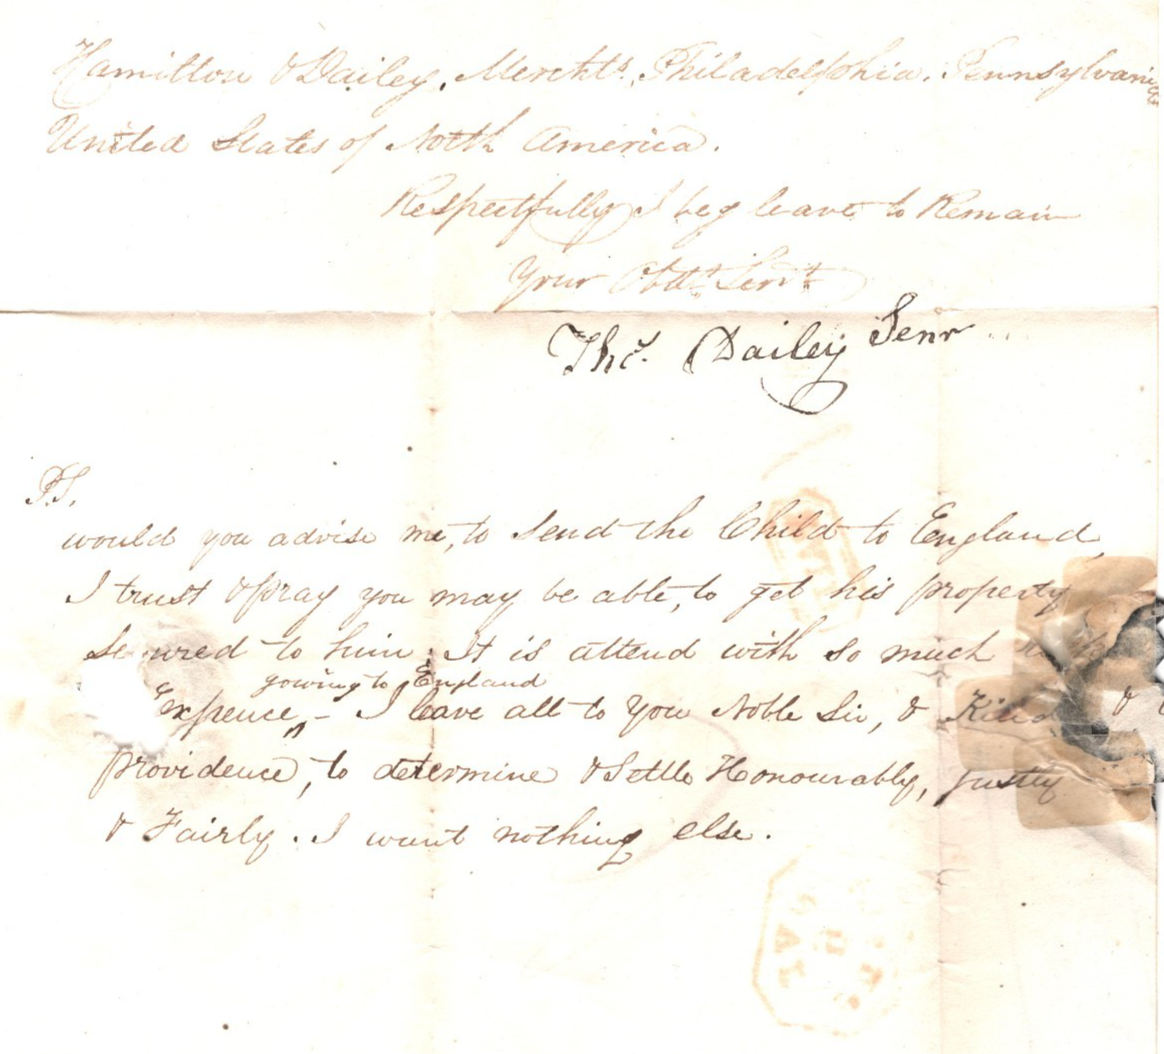 Hamilton & Dailey, Merchts. Philadelphia. Pennsylvania
United States of North America.
Respectfully I beg leave to Remain
Your Obdt. Servt
Thos. Dailey Senr
P.S.
would you advise me, to send the Child to England,
I trust & pray you may be able, to get his property
Secured to him. It is attend with so much
gowing to England
Expence, - I leave all to You Noble Sir, & Kind &
providence, to determine & Settle Honourably, justly
& Fairly. I want nothing else.